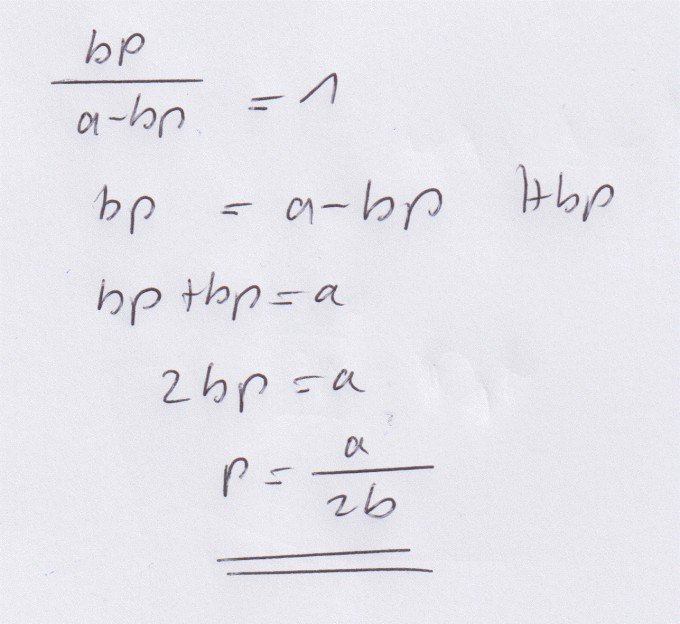 bp/(a-bp) = 1
bp = a-bp |+bp
bp+bp=a
2bp=a
p = a/(2b)